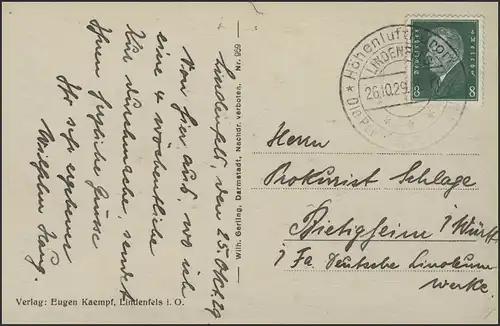 Lindenfels, den 25. Okt. 29
Von hier aus, wo ich
eine 4 wöchentliche
Kur durchmache, sendet
Ihnen herzliche Grüsse
Ihr sehr ergebener
Wilhelm Haug.
Verlag: Eugen Kaempf, Lindenfels i. O.
Wilh. Gerling, Darmstadt, Nachdr. verboten. Nr. 959
Höhenluftkurort
LINDENFELS
26.10.29
Die Per
DEUTSCHES REICH
8 8
Herrn
Prokurist Schlage
Bietigheim / Württ
/ Fa. Deutsche Linoleum
Werke.